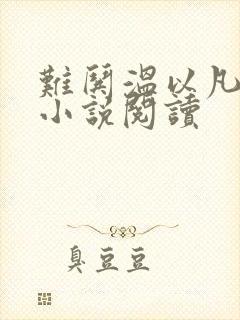 難鬨溫以凡
小說閱讀
臭豆豆